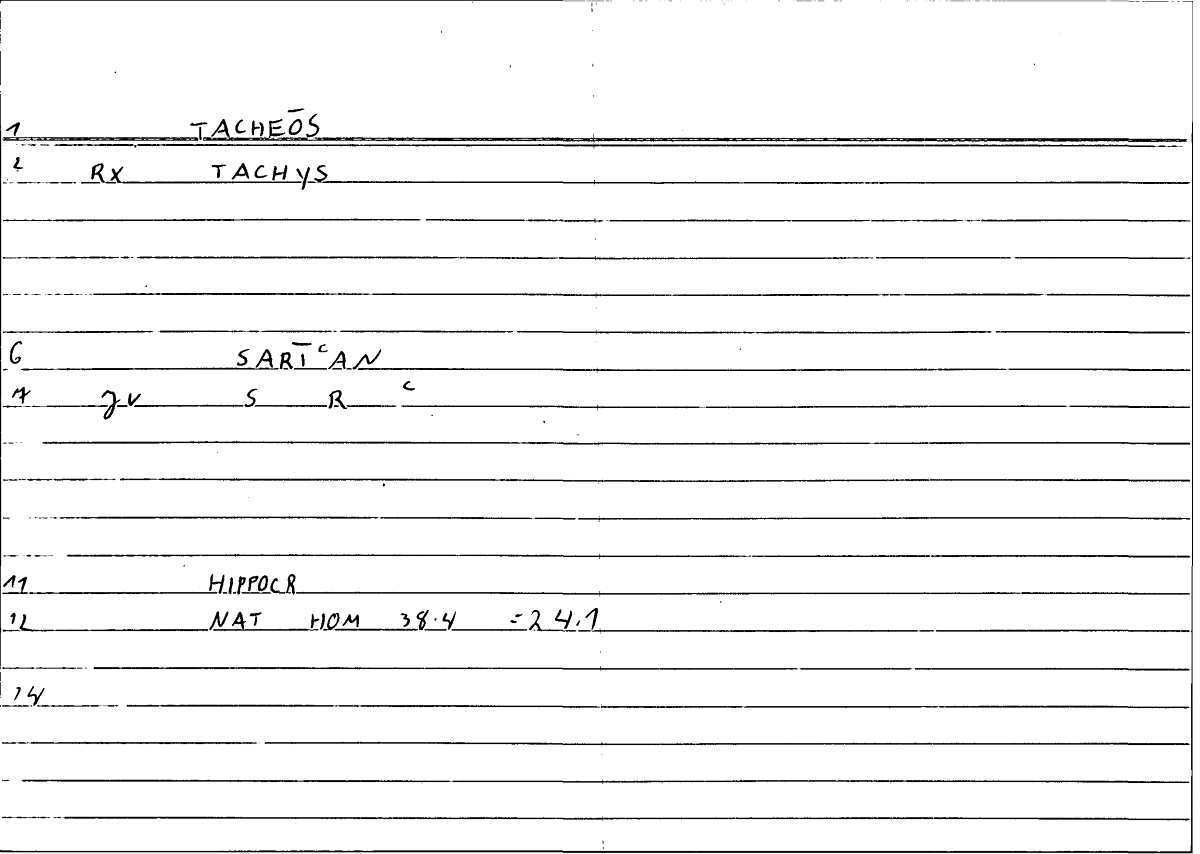 1 TACHEŌS
2 RX TACHYS
6 SARĪᶜAN
7 JV S R ᶜ
11 HIPPOCR
12 NAT HOM 38.4 =24.1
14